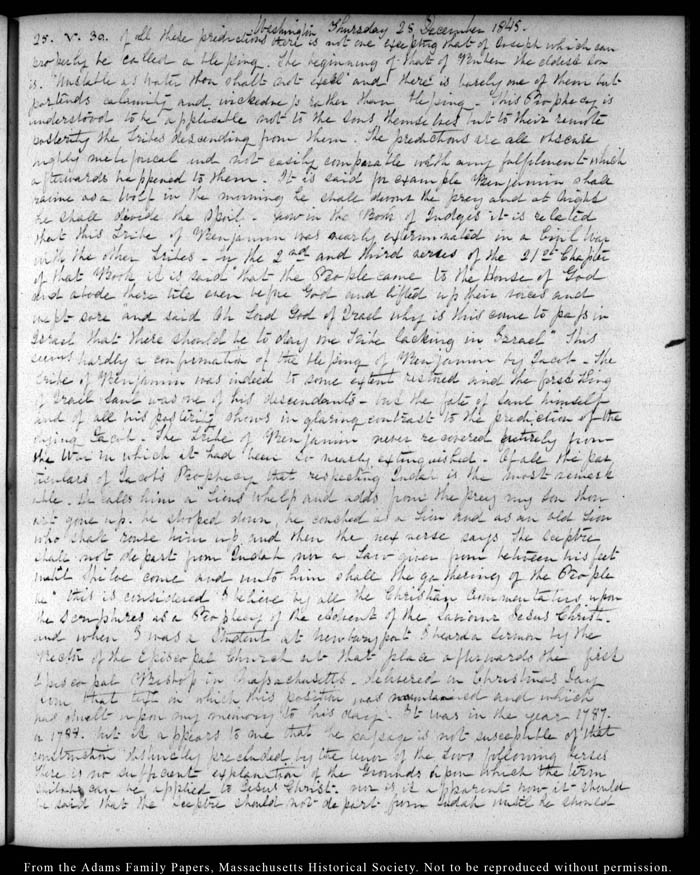 Washington Thursday 25 December 1845.
25. V. 30. of all these predictions there is not one excepting that of Joseph which can
properly be called a blessing. The beginning of that of Reuben the eldest Son
is. "Unstable as water thou shalt not excel" and there is barely one of them but
portends calamity and wickedness rather than blessing. This Prophecy is
understood to be applicable not to the Sons themselves but to their remote
posterity the Tribes descending from them. The predictions are all obscure
highly metaphorical and not easily comparable with any fulfilment which
afterwards happened to them. It is said for example Benjamin shall
ravine as a Wolf in the morning he shall devour the prey and at Night
he shall divide the Spoil. Now in the Book of Judges it is related
that this Tribe of Benjamin was nearly exterminated in a Civil War
with the other Tribes. In the 2nd and third verses of the 21st Chapter
of that Book it is said "that the People came to the House of God
and abode there till even before God and lifted up their voices and
wept sore and said Oh Lord God of Israel why is this come to pass in
Israel that there should be to day one Tribe lacking in Israel" This
seems hardly a confirmation of the blessing of Benjamin by Jacob. The
tribe of Benjamin was indeed to some extent restored and the first King
of Israel Saul was one of his descendants. but the fate of Saul himself
and of all his posterity shows in glaring contrast to the prediction of the
dying Jacob. The Tribe of Benjamin never recovered entirely from
the War in which it had been so nearly extinguished. Of all the par
ticulars of Jacob's Prophecy that respecting Judah is the most remark
able. He calls him a "Lions whelp and adds from the prey my son thou
art gone up. he stooped down, he couched as a Lion and as an old Lion
who shall rouse him up, and then the next verse says The Sceptre
shall not depart from Judah nor a Law giver from between his feet
until Shiloe come and unto him shall the gathering of the People
be" this is considered I believe by all the Christian Commentators upon
the Scriptures as a Prophecy of the advent of the Saviour Jesus Christ.
and when I was a Student at Newburyport I heard a Sermon by the
Rector of the Episcopal Church at that place afterwards the first
Episcopal Bishop in Massachusetts. delivered on Christmas Day
from that text in which this position was maintained and which
has dwelt upon my memory to this day. It was in the year 1787.
or 1788. but it appears to me that the passage is not susceptible of that
construction distinctly precluded by the tenor of the two following verses
There is no sufficient explanation of the Grounds upon which the term
Shiloh can be applied to Jesus Christ. nor is it apparent how it should
be said that the Sceptre should not depart from Judah until he should
From the Adams Family Papers, Massachusetts Historical Society. Not to be reproduced without permission.